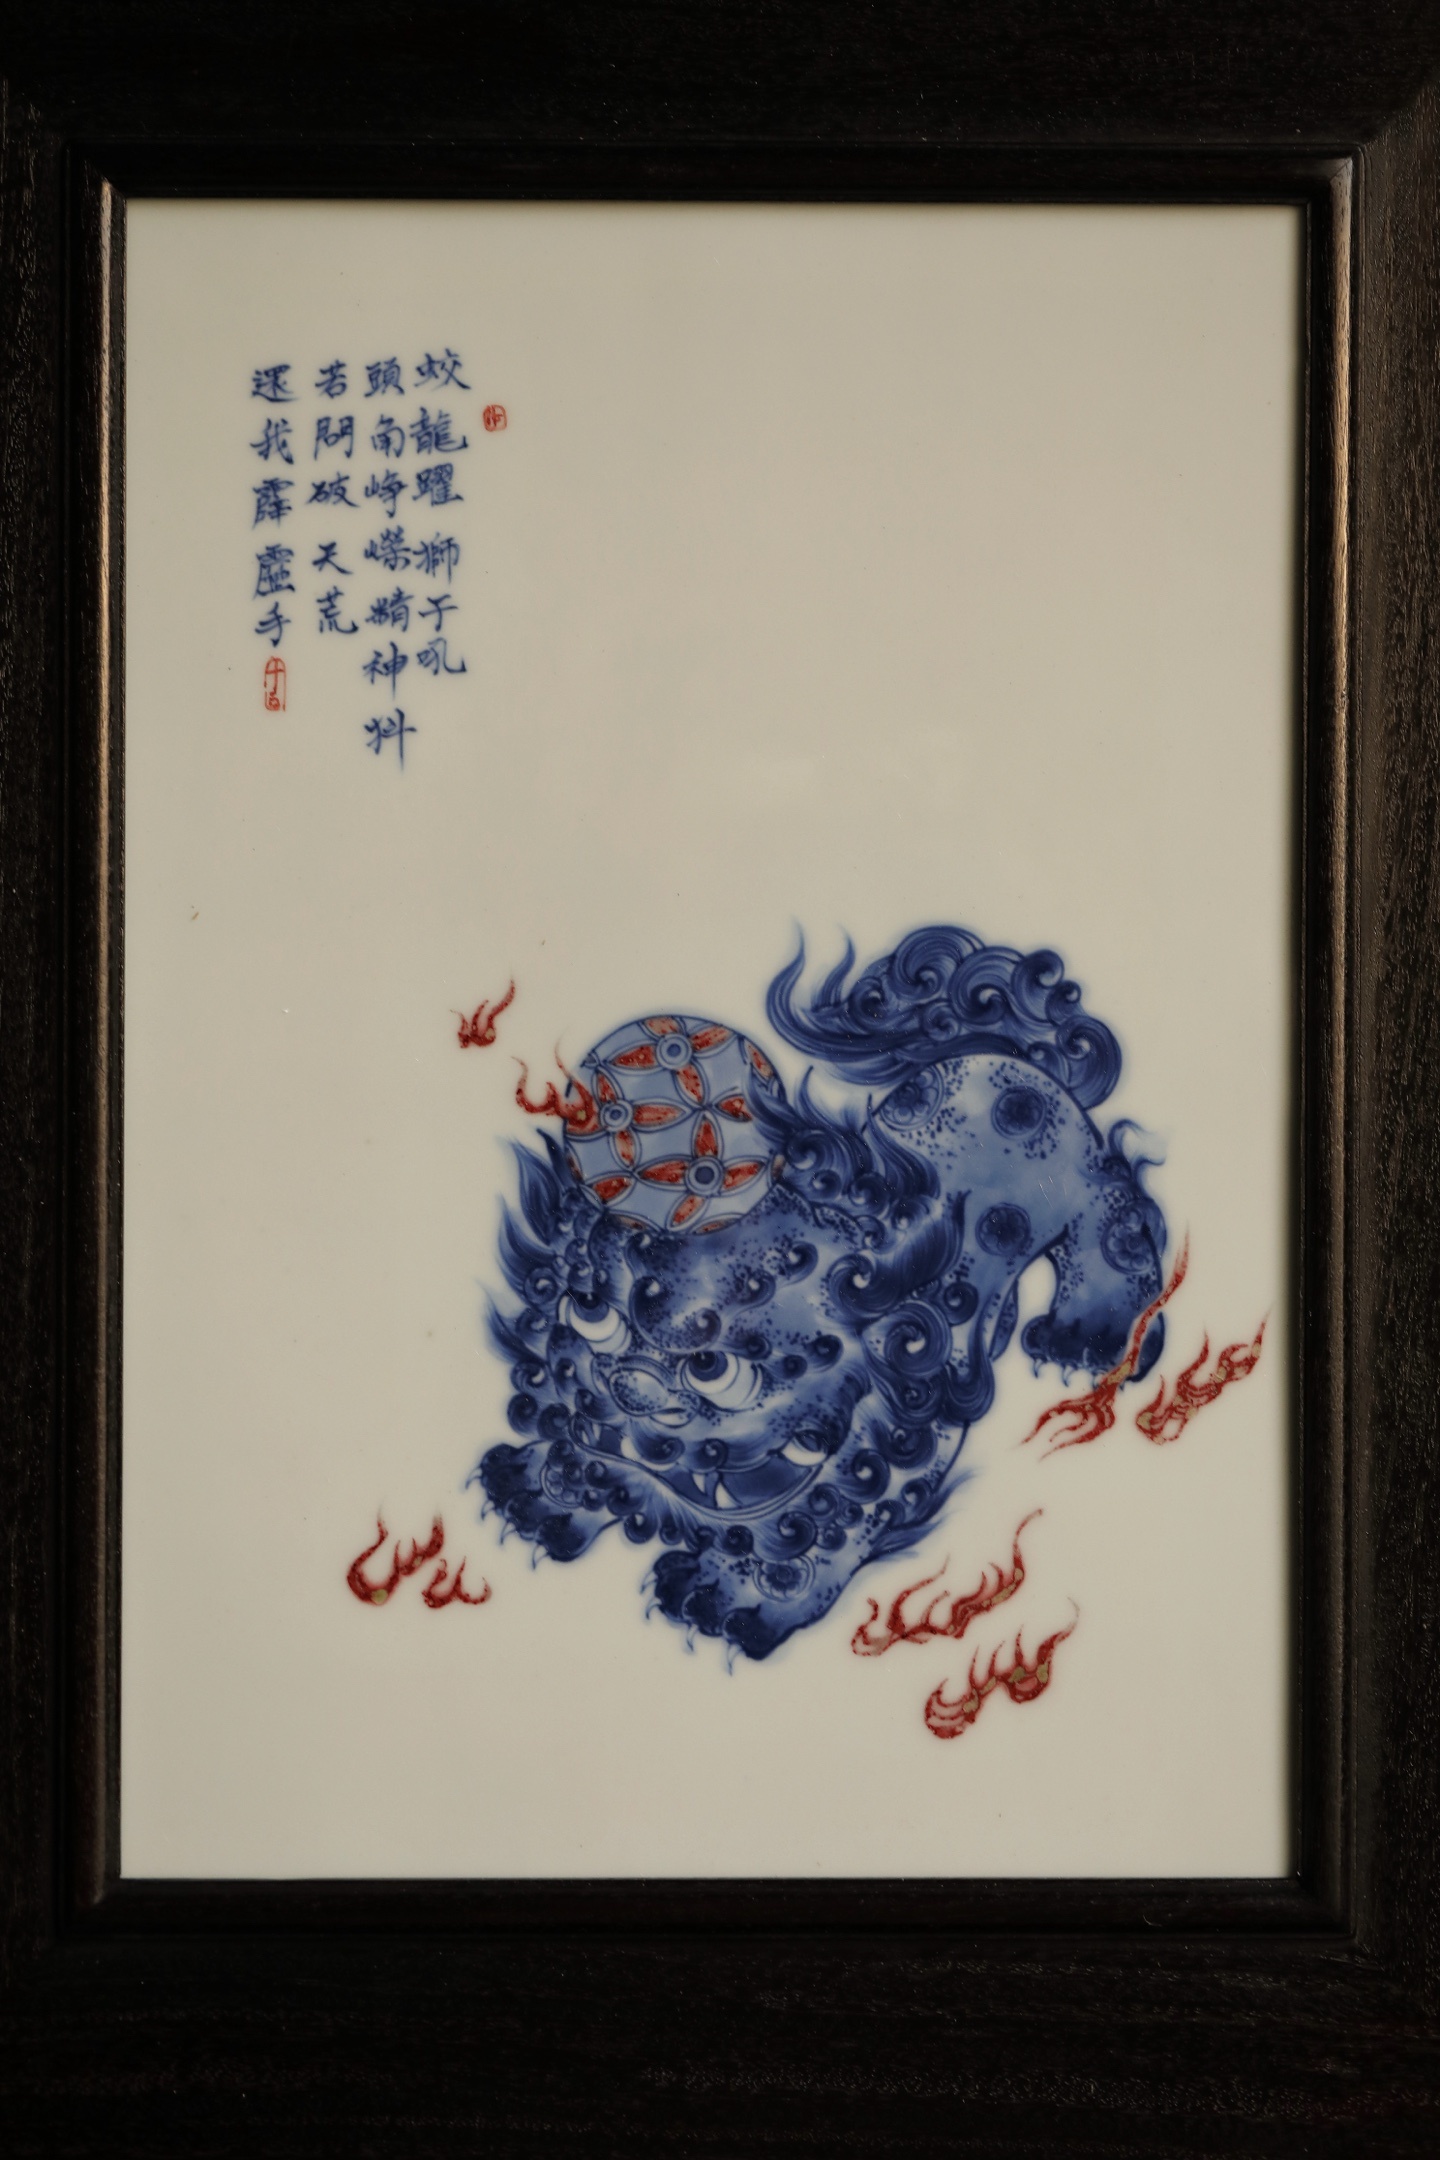 蛟龍躍獅子吼
頭角崢嶸精神抖
若問破天荒
還我霹靂手